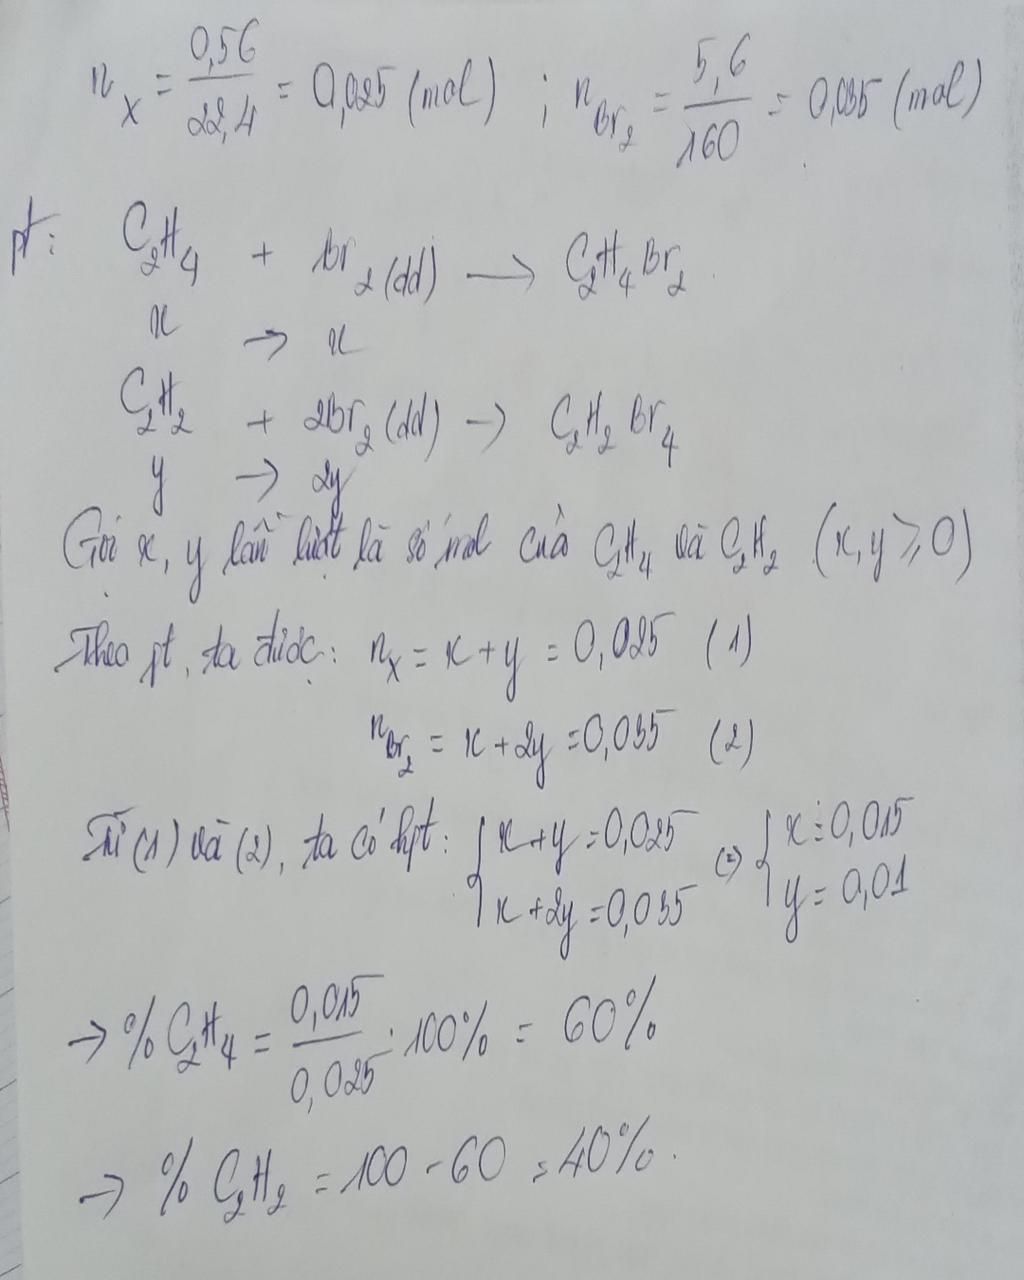 n_X = 0,56/22,4 = 0,025 (mol) ; n_Br₂ = 5,6/160 = 0,035 (mol)
pt: C₂H₄ + Br₂ (dd) → C₂H₄Br₂
x → x
C₂H₂ + 2Br₂ (dd) → C₂H₂Br₄
y → 2y
Gọi x, y lần lượt là số mol của C₂H₄ và C₂H₂ (x, y ≥ 0)
Theo pt, ta được: n_X = x + y = 0,025 (1)
n_Br₂ = x + 2y = 0,035 (2)
Từ (1) và (2), ta có hpt: { x + y = 0,025 ; x + 2y = 0,035 (=) { x = 0,015 ; y = 0,01
→ % C₂H₄ = 0,015/0,025 . 100% = 60%
→ % C₂H₂ = 100 - 60 = 40%.